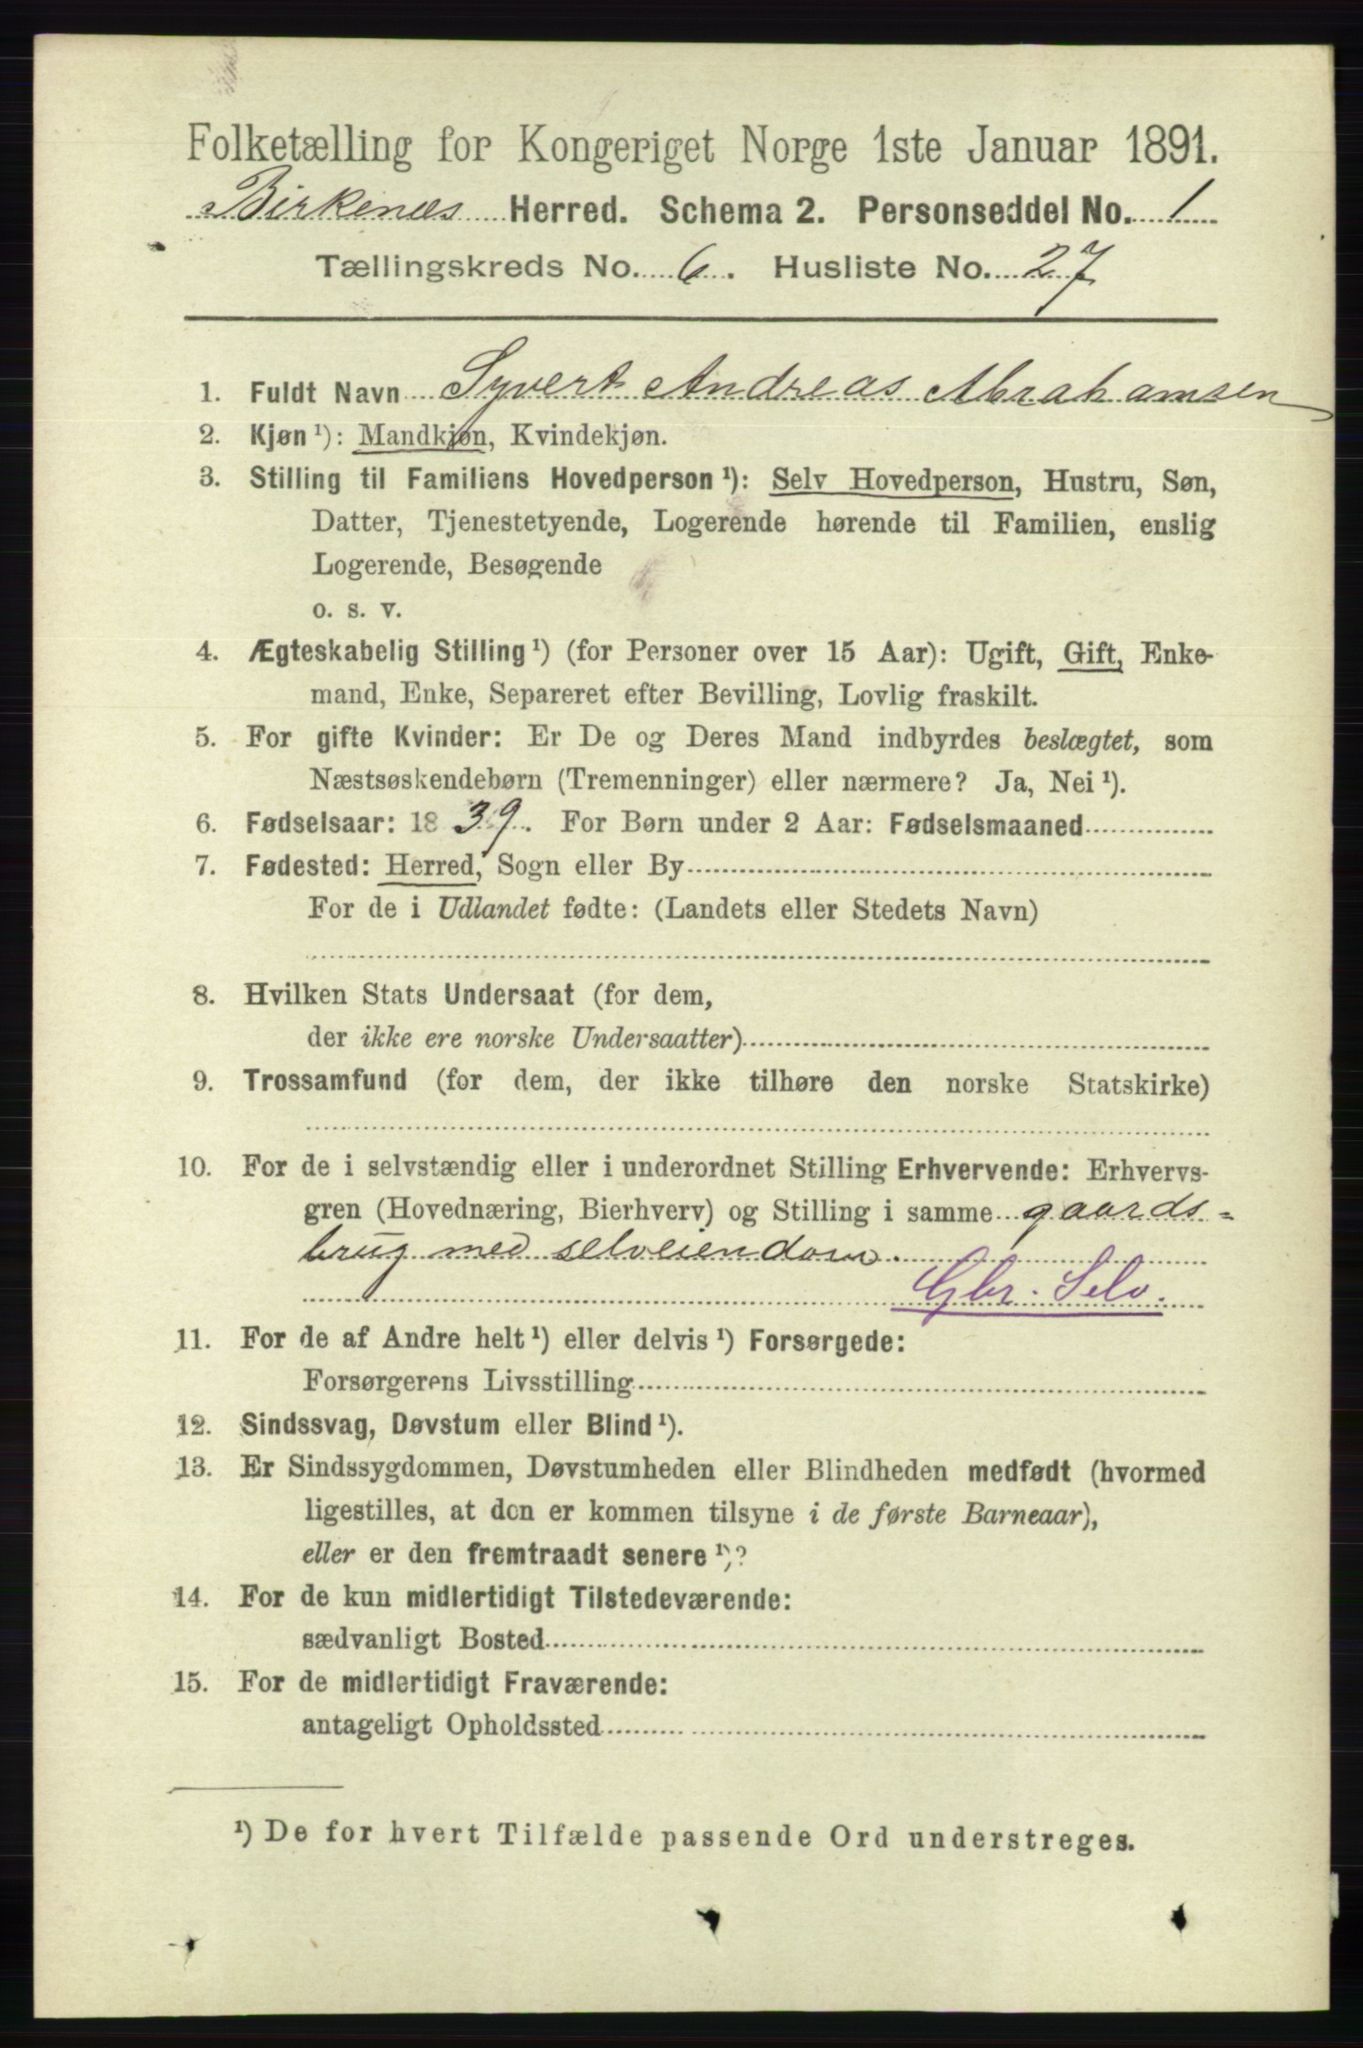 Folketælling for Kongeriget Norge 1ste Januar 1891.
Birkenæs Herred. Schema 2. Personseddel No. 1
Tællingskreds No. 6. Husliste No. 27
1. Fuldt Navn Syvert Andreas Abrahamsen
2. Kjøn¹): Mandkjøn, Kvindekjøn.
3. Stilling til Familiens Hovedperson¹): Selv Hovedperson, Hustru, Søn,
Datter, Tjenestetyende, Logerende hørende til Familien, enslig
Logerende, Besøgende
o. s. v.
4. Ægteskabelig Stilling¹) (for Personer over 15 Aar): Ugift, Gift, Enke-
mand, Enke, Separeret efter Bevilling, Lovlig fraskilt.
5. For gifte Kvinder: Er De og Deres Mand indbyrdes beslægtet, som
Næstsøskendebørn (Tremenninger) eller nærmere? Ja, Nei¹).
6. Fødselsaar: 1839. For Børn under 2 Aar: Fødselsmaaned
7. Fødested: Herred, Sogn eller By
For de i Udlandet fødte: (Landets eller Stedets Navn)
8. Hvilken Stats Undersaat (for dem,
der ikke ere norske Undersaatter)
9. Trossamfund (for dem, der ikke tilhøre den norske Statskirke)
10. For de i selvstændig eller i underordnet Stilling Erhvervende: Erhvervs-
gren (Hovednæring, Bierhverv) og Stilling i samme gaards-
brug med selveiendom.
Gbr. Selv.
11. For de af Andre helt¹) eller delvis¹) Forsørgede:
Forsørgerens Livsstilling
12. Sindssvag, Døvstum eller Blind¹).
13. Er Sindssygdommen, Døvstumheden eller Blindheden medfødt (hvormed
ligestilles, at den er kommen tilsyne i de første Barneaar),
eller er den fremtraadt senere¹)?
14. For de kun midlertidigt Tilstedeværende:
sædvanligt Bosted
15. For de midlertidigt Fraværende:
antageligt Opholdssted
¹) De for hvert Tilfælde passende Ord understreges.